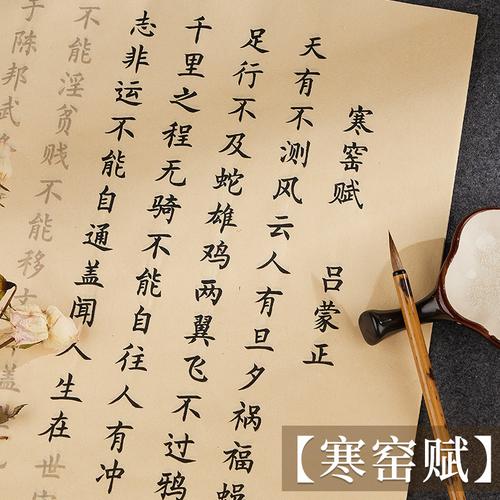 寒窑赋 吕蒙正
天有不测风云人有旦夕祸福
足行不及蛇雄鸡两翼飞不过鸦
千里之程无骑不能自往人有冲
志非运不能自通盖闻人生在世
不能淫贫贱不能移
盖
陈邦武
【寒窑赋】